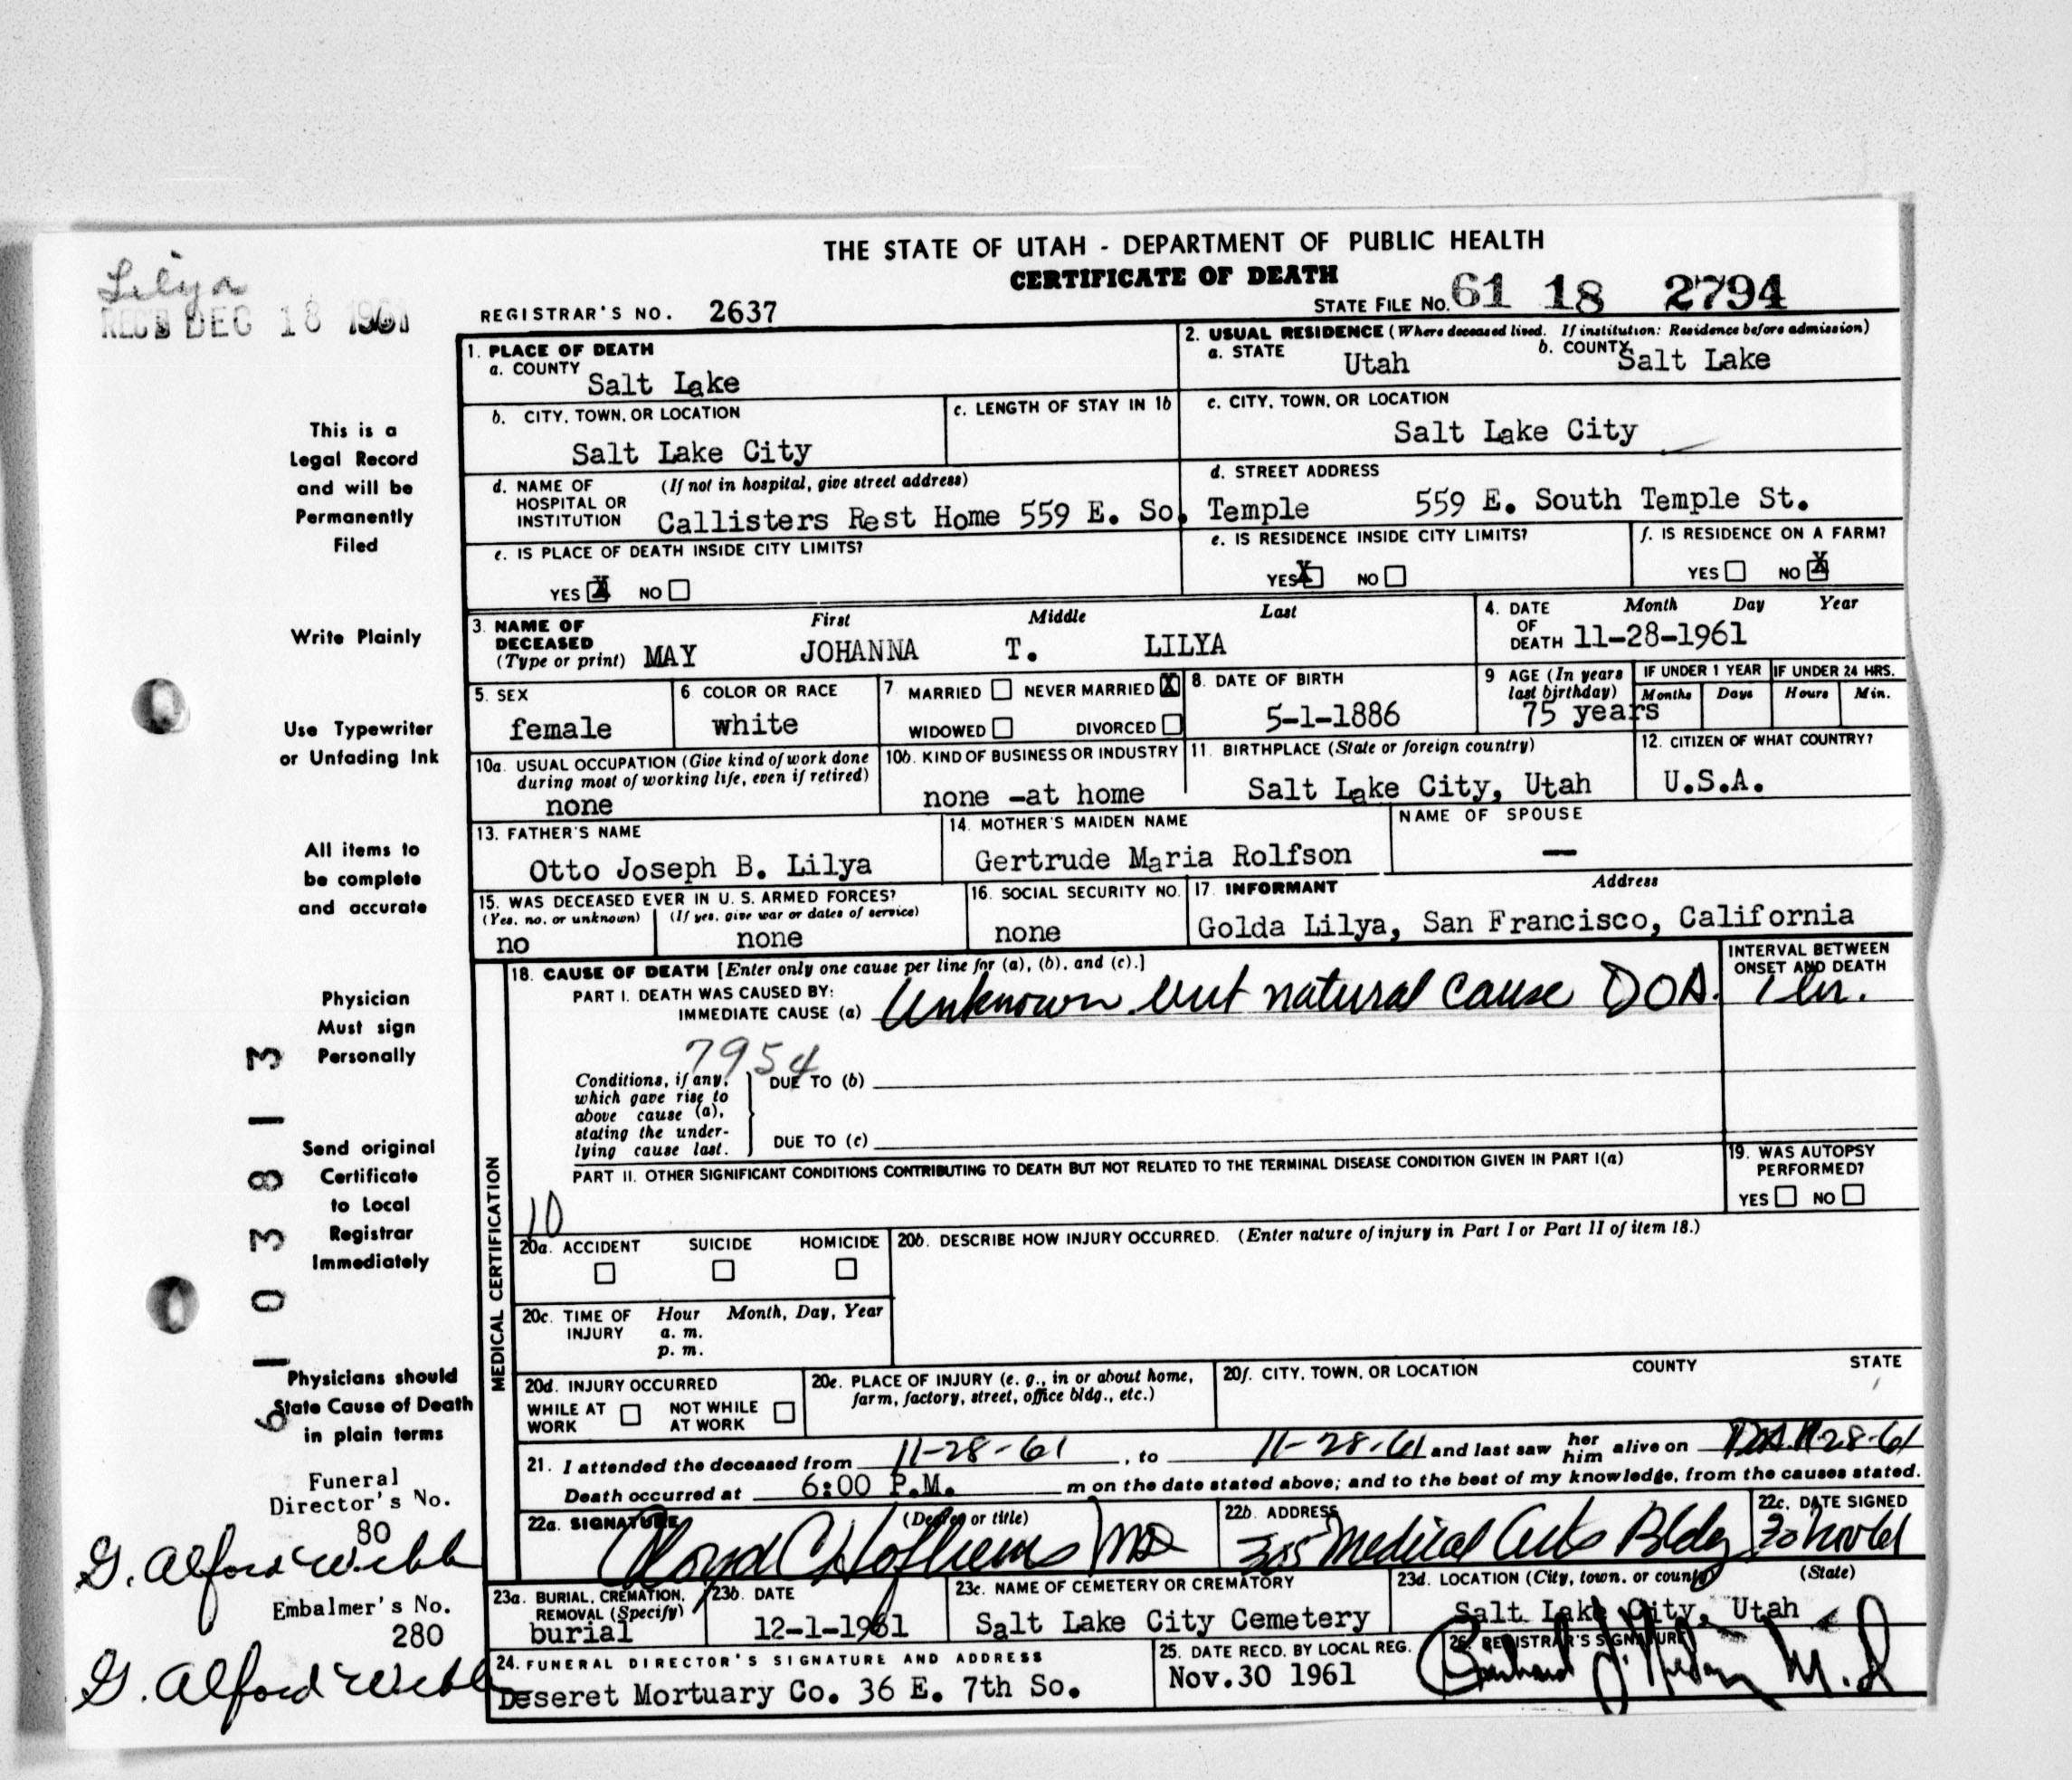 THE STATE OF UTAH - DEPARTMENT OF PUBLIC HEALTH
CERTIFICATE OF DEATH
Lilya
REC'D DEC 18 1961
REGISTRAR'S NO. 2637
STATE FILE NO. 61 18 2794
1. PLACE OF DEATH
a. COUNTY
Salt Lake
2. USUAL RESIDENCE (Where deceased lived. If institution: Residence before admission)
a. STATE Utah b. COUNTY Salt Lake
b. CITY, TOWN, OR LOCATION
Salt Lake City
c. LENGTH OF STAY IN 1b
c. CITY, TOWN, OR LOCATION
Salt Lake City
d. NAME OF HOSPITAL OR INSTITUTION (If not in hospital, give street address)
Callisters Rest Home 559 E. So. Temple
d. STREET ADDRESS
559 E. South Temple St.
e. IS PLACE OF DEATH INSIDE CITY LIMITS?
YES X NO
e. IS RESIDENCE INSIDE CITY LIMITS?
YES X NO
f. IS RESIDENCE ON A FARM?
YES NO X
3. NAME OF DECEASED (Type or print)
First Middle Last
MAY JOHANNA T. LILYA
4. DATE OF DEATH Month Day Year
11-28-1961
5. SEX
female
6. COLOR OR RACE
white
7. MARRIED NEVER MARRIED X
WIDOWED DIVORCED
8. DATE OF BIRTH
5-1-1886
9 AGE (In years last birthday)
75 years
IF UNDER 1 YEAR
Months Days
IF UNDER 24 HRS.
Hours Min.
10a. USUAL OCCUPATION (Give kind of work done during most of working life, even if retired)
none
10b. KIND OF BUSINESS OR INDUSTRY
none -at home
11. BIRTHPLACE (State or foreign country)
Salt Lake City, Utah
12. CITIZEN OF WHAT COUNTRY?
U.S.A.
13. FATHER'S NAME
Otto Joseph B. Lilya
14. MOTHER'S MAIDEN NAME
Gertrude Maria Rolfson
NAME OF SPOUSE
—
15. WAS DECEASED EVER IN U. S. ARMED FORCES?
(Yes, no, or unknown) (If yes, give war or dates of service)
no none
16. SOCIAL SECURITY NO.
none
17. INFORMANT Address
Golda Lilya, San Francisco, California
MEDICAL CERTIFICATION
18. CAUSE OF DEATH [Enter only one cause per line for (a), (b), and (c).]
PART I. DEATH WAS CAUSED BY:
IMMEDIATE CAUSE (a) Unknown but natural cause DOA.
INTERVAL BETWEEN ONSET AND DEATH
1 hr.
7954
Conditions, if any, which gave rise to above cause (a), stating the underlying cause last.
DUE TO (b)
DUE TO (c)
PART II. OTHER SIGNIFICANT CONDITIONS CONTRIBUTING TO DEATH BUT NOT RELATED TO THE TERMINAL DISEASE CONDITION GIVEN IN PART I(a)
10
19. WAS AUTOPSY PERFORMED?
YES NO
20a. ACCIDENT SUICIDE HOMICIDE
20b. DESCRIBE HOW INJURY OCCURRED. (Enter nature of injury in Part I or Part II of item 18.)
20c. TIME OF INJURY Hour Month, Day, Year
a. m.
p. m.
20d. INJURY OCCURRED
WHILE AT WORK NOT WHILE AT WORK
20e. PLACE OF INJURY (e. g., in or about home, farm, factory, street, office bldg., etc.)
20f. CITY, TOWN, OR LOCATION COUNTY STATE
21. I attended the deceased from 11-28-61, to 11-28-61 and last saw her him alive on DOA 11-28-61
Death occurred at 6:00 P.M. m on the date stated above; and to the best of my knowledge, from the causes stated.
22a. SIGNATURE (Degree or title)
MD
22b. ADDRESS
Medical Arts Bldg
22c. DATE SIGNED
30 Nov 61
23a. BURIAL, CREMATION, REMOVAL (Specify)
burial
23b. DATE
12-1-1961
23c. NAME OF CEMETERY OR CREMATORY
Salt Lake City Cemetery
23d. LOCATION (City, town, or county) (State)
Salt Lake City, Utah
24. FUNERAL DIRECTOR'S SIGNATURE AND ADDRESS
Deseret Mortuary Co. 36 E. 7th So.
25. DATE RECD. BY LOCAL REG.
Nov. 30 1961
26. REGISTRAR'S SIGNATURE
M.D
This is a
Legal Record
and will be
Permanently
Filed
Write Plainly
Use Typewriter
or Unfading Ink
All items to
be complete
and accurate
Physician
Must sign
Personally
Send original
Certificate
to Local
Registrar
Immediately
Physicians should
State Cause of Death
in plain terms
6 1 0 3 8 1 3
Funeral
Director's No.
80
G. Alford Webb
Embalmer's No.
280
G. Alford Webb